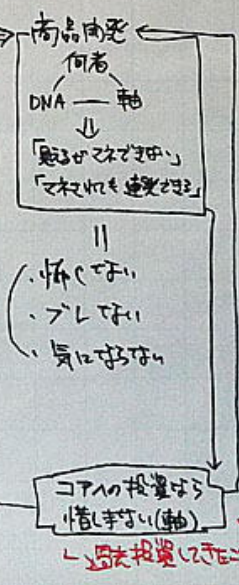 商品開発
何者
DNA — 軸
⇓
「見るがマネできない」
「マネされても連発できる」
||
・怖くない
・ブレない
・気にならない
コアへの投資なら
惜しまない(軸)
過去投資してきたこ